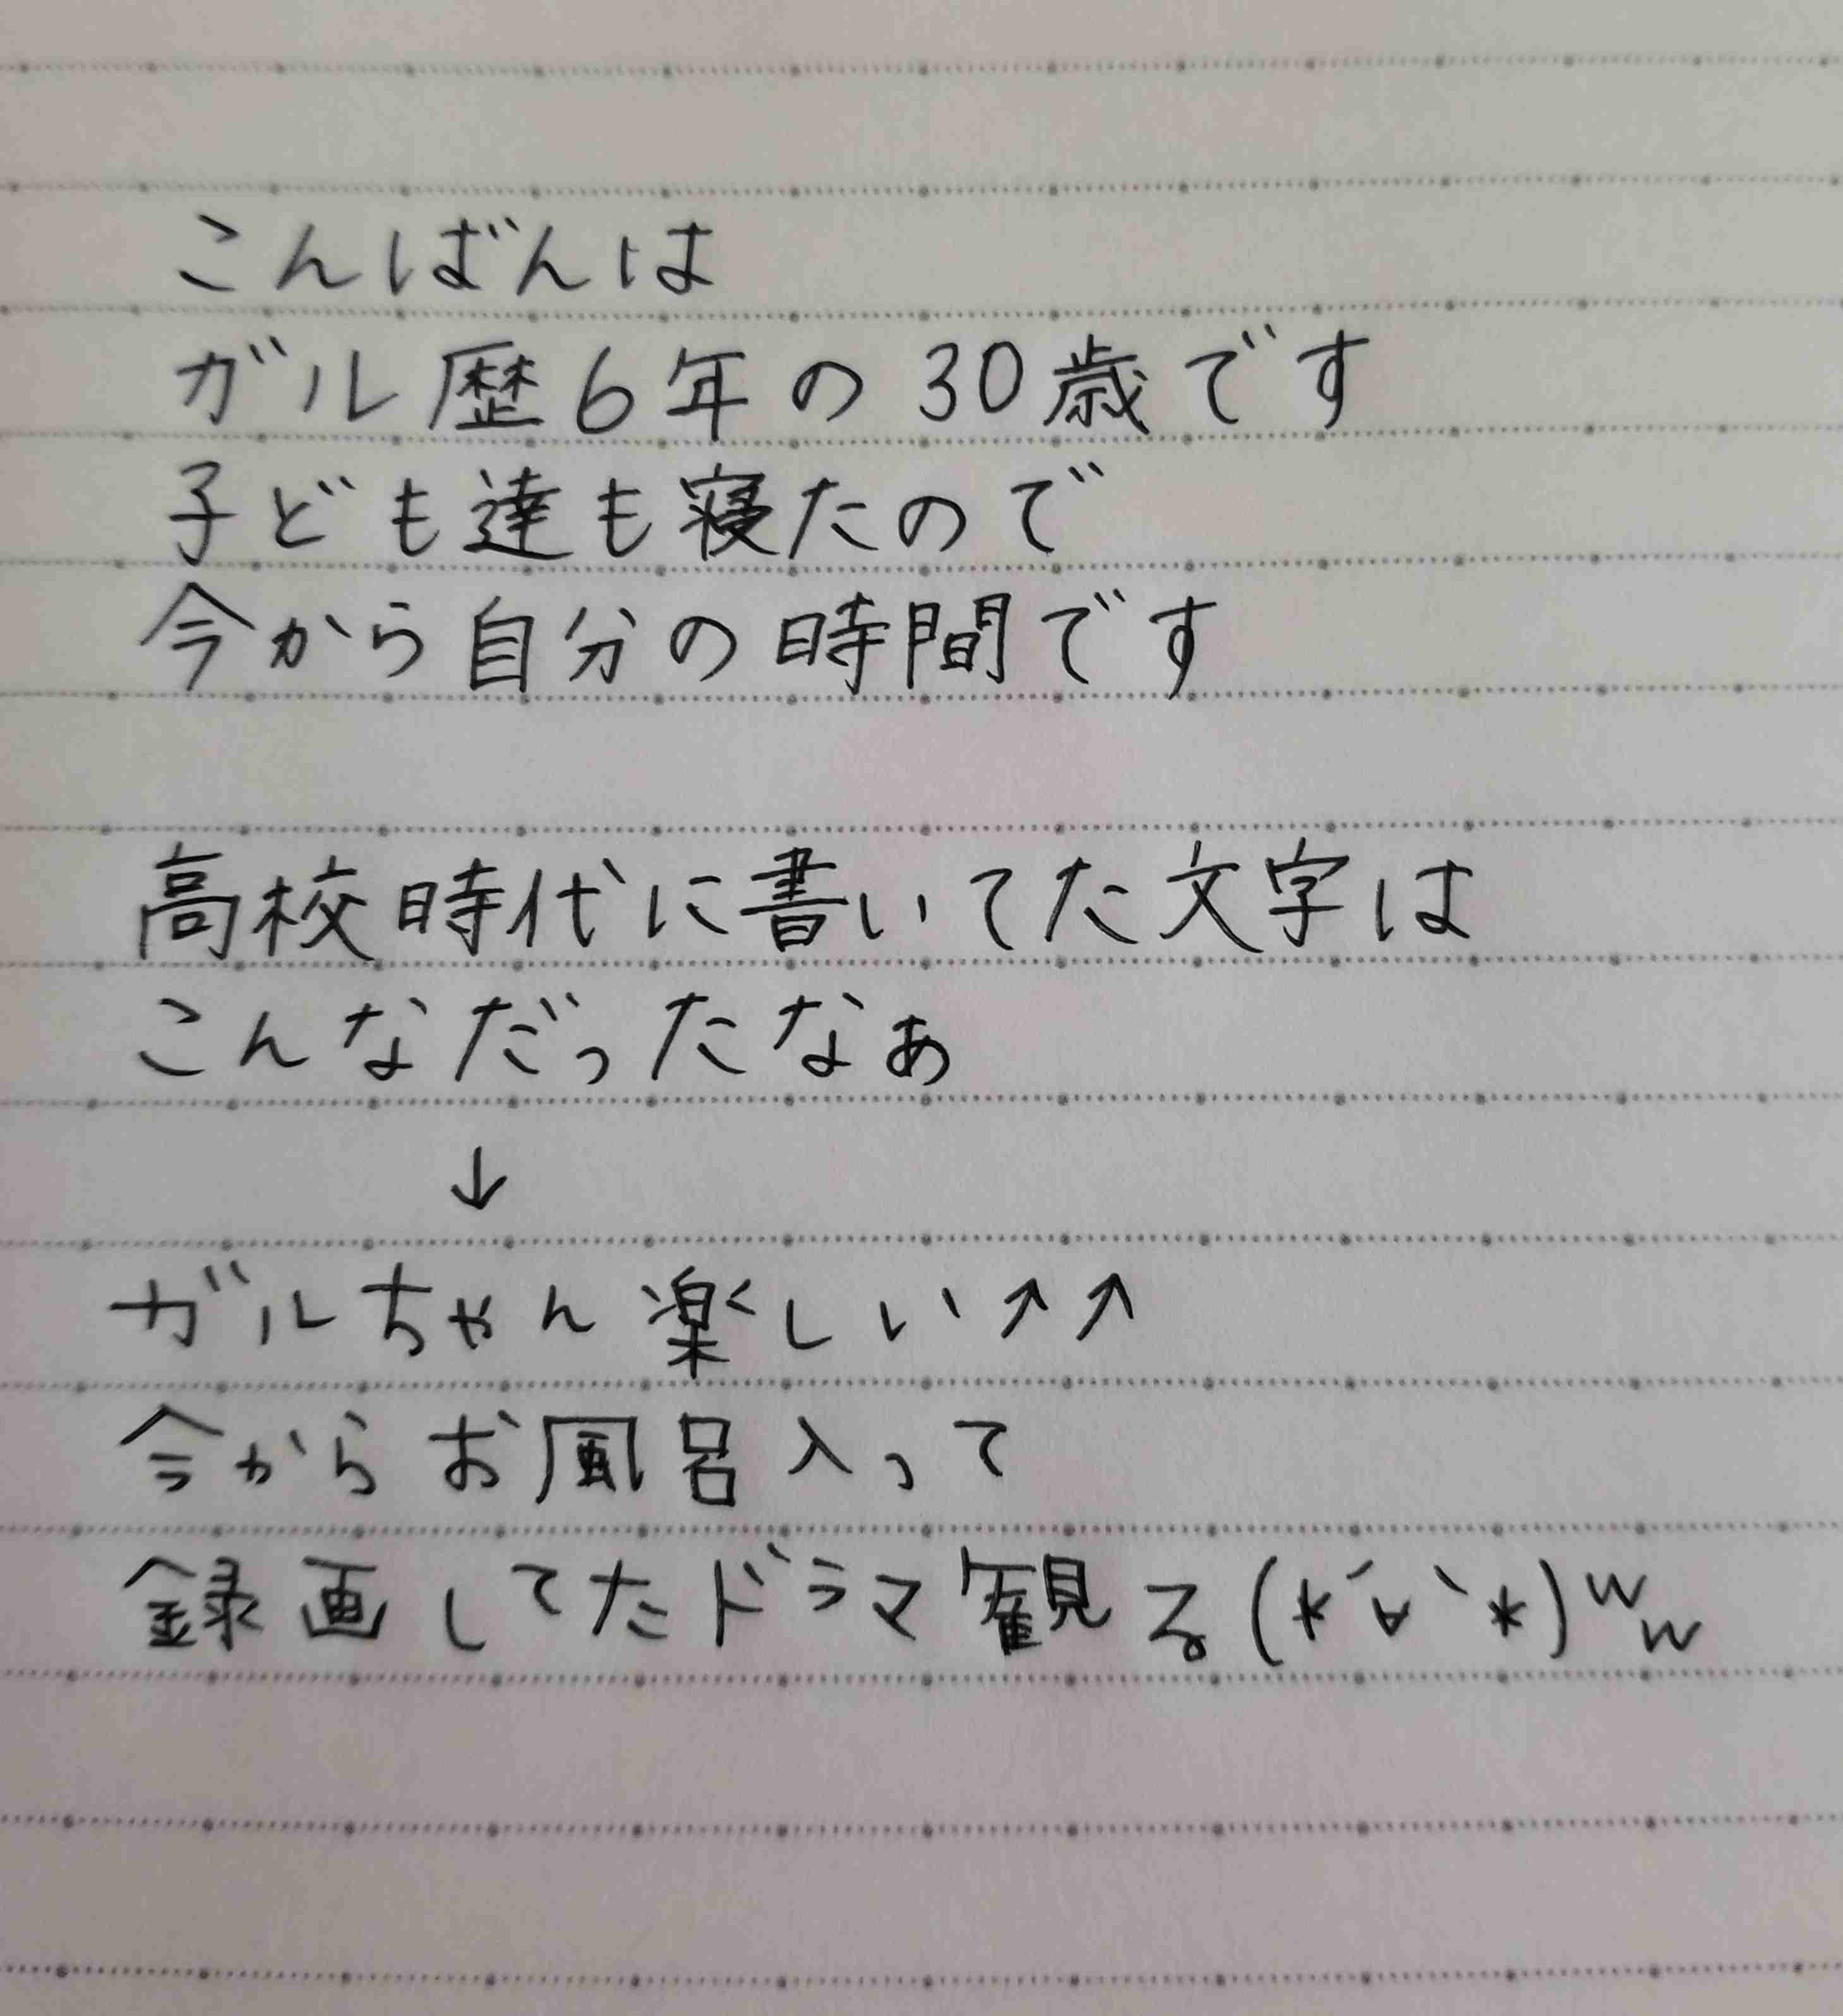 こんばんは
ガル歴6年の30歳です
子ども達も寝たので
今から自分の時間です
高校時代に書いてた文字は
こんなだったなぁ
↓
ガルちゃん楽しい↗↗
今からお風呂入って
録画してたドラマ観る(*´∀`*)ww